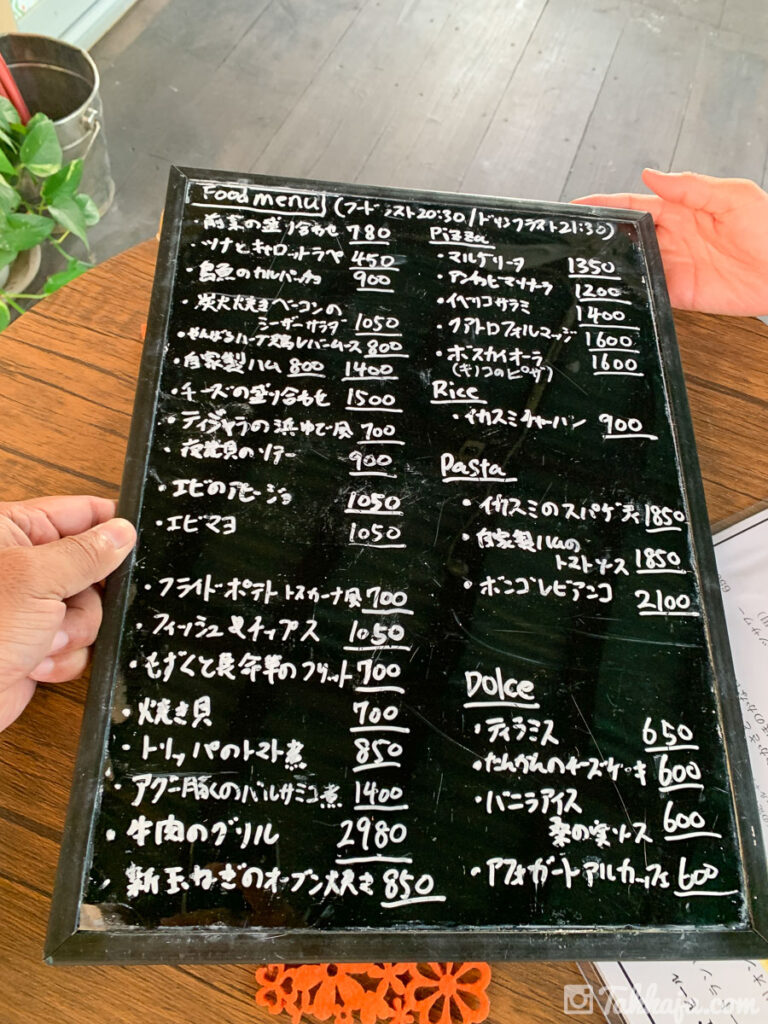 Food menu (フードラスト20:30/ドリンクラスト21:30)
・前菜の盛り合わせ 780
・ツナとキャロットラペ 450
・島魚のカルパッチョ 900
・炭火焼きベーコンの
シーザーサラダ 1050
・やんばるハーブ鶏レバームース 800
・自家製ハム 800 1400
・チーズの盛り合わせ 1500
・ティジャラの浜ゆで風 700
・夜光貝のソテー 900
・エビのアヒージョ 1050
・エビマヨ 1050
・フライドポテト トスカーナ風 700
・フィッシュ&チップス 1050
・もずくと長命草のフリット 700
・焼き貝 700
・トリッパのトマト煮 850
・アグー豚のバルサミコ煮 1400
・牛肉のグリル 2980
・新玉ねぎのオーブン焼き 850
Pizza
・マルゲリータ 1350
・アンチョビマリナーラ 1200
・イベリコサラミ 1400
・クアトロフォルマッジ 1600
・ボスカイオーラ 1600
(きのこのピザ)
Rice
・イカスミチャーハン 900
Pasta
・イカスミのスパゲティ 1850
・自家製ハムの
トマトソース 1850
・ボンゴレビアンコ 2100
Dolce
・ティラミス 650
・たんかんのチーズケーキ 600
・バニラアイス
桑の実ソース 600
・アフォガートアルカッフェ 600
Takkaju.com